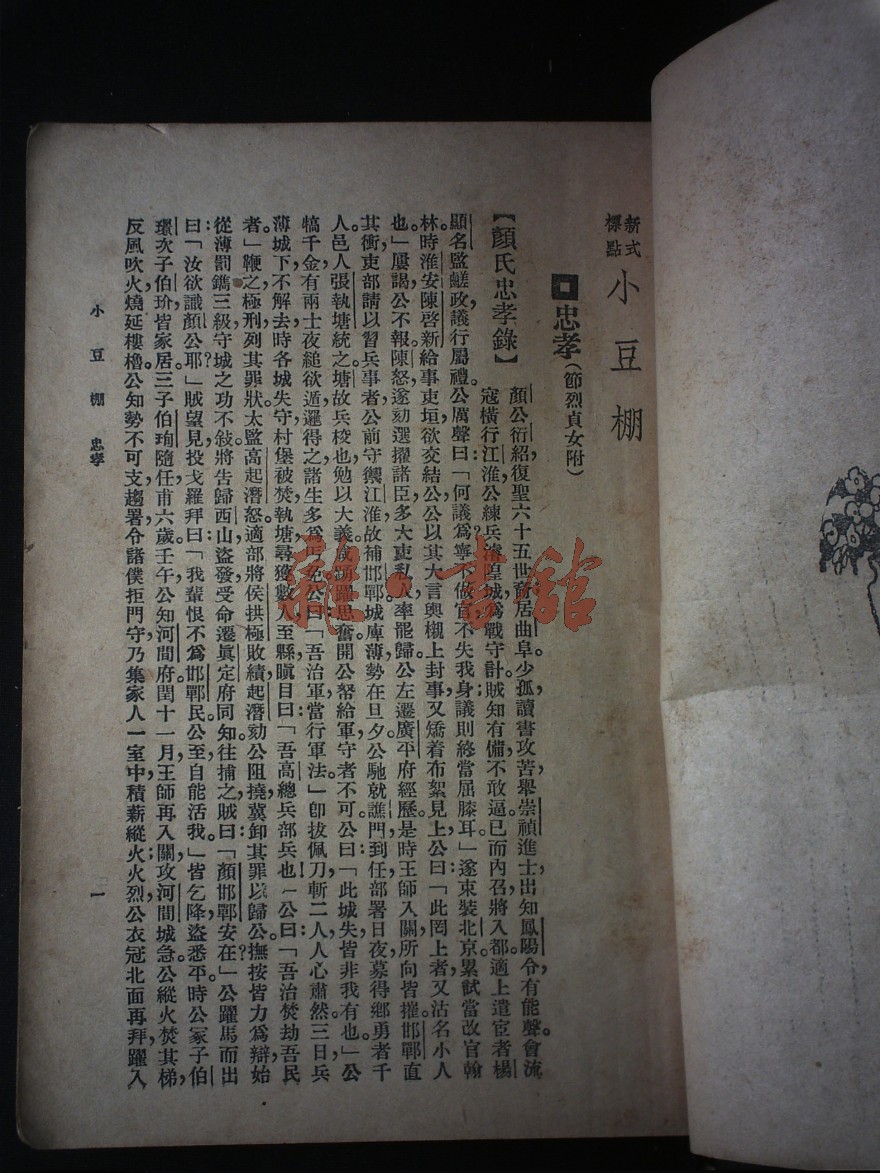 新式標點 小豆棚
忠孝(節烈貞女附)
【顏氏忠孝錄】
顏公衍紹,復聖六十五世裔,居曲阜。少孤,讀書攻苦,舉崇禎進士,出知鳳陽令,有能聲。會流
寇橫行江淮,公練兵濬隍城,爲戰守計。賊知有備,不敢逼。已而內召,將入都。適上遣宦者楊
顯名監鹺政,議行屬禮。公厲聲曰:「何議爲?寧不做官,不失我身;議則終當屈膝耳。」遂束裝北京。累試當改官翰
林。時淮安陳啓新給事吏垣,欲交結公。公以其大言輿櫬上封事,又矯着布絮見上。公曰:「此罔上者,又沽名小人
也。」屢謁,公不報。陳怒,遂劾選擢諸臣,多大吏私人,率罷歸。公左遷廣平府經歷。是時王師入關,所向皆摧。邯鄲直
其衝,吏部請以習兵事者,公前守禦江淮,故補邯鄲。城庫薄,勢在旦夕。公馳就譙門,到任部署,日夜募得鄉勇者千
人。邑人張執塘統之,塘故兵校也,勉以大義,咸踴躍思奮。開公帑給軍,守者不可。公曰:「此城失,皆非我有也。」公
犒千金,有兩士夜縋欲遁,邏得之,諸生多爲乞免。公曰:「吾治軍當行軍法。」卽拔佩刀斬二人,人心肅然。三日,兵
薄城下,不解去。時各城失守,村堡被焚,執塘尋獲數人至縣,瞋目曰:「吾高總兵部兵也!」公曰:「吾治焚劫吾民
者。」鞭之極刑,列其罪狀。太監高起潛怒,適部將侯拱極敗績,起潛劾公阻撓,冀卸其罪以歸公。撫按皆力爲辯,始
從薄罰,鐫三級,守城之功不敍。將告歸,西山盜發,受命遷眞定府同知。往捕之,賊曰:「顏邯鄲安在?」公躍馬而出
曰:「汝欲識顏公耶?」賊望見,投戈羅拜曰:「我輩恨不爲邯鄲民。公至,自能活我。」皆乞降,盜悉平。時公冢子伯
璟,次子伯玠,皆家居。三子伯珣隨任,甫六歲。壬午,公知河間府。閏十一月,王師再入關,攻河間城急。公縱火焚其梯,
反風吹火,燒延樓櫓。公知勢不可支,趨署,令諸僕拒門守,乃集家人一室中,積薪縱火,火烈,公衣冠北面再拜,躍入
小豆棚 忠孝 一
雜·書館